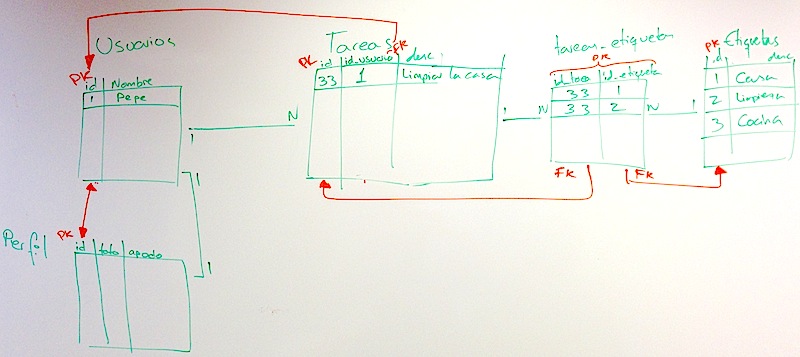 Usuarios
PK
id Nombre
1 Pepe
1 N
Tareas
PK FK
id id_usuario desc.
33 1 Limpiar la casa
1 N
tareas_etiquetas
PK
id_tarea id_etiqueta
33 1
33 2
FK FK
N 1
PK Etiquetas
id desc
1 Casa
2 Limpieza
3 Cocina
1
1
Perfil
PK
id foto apodo